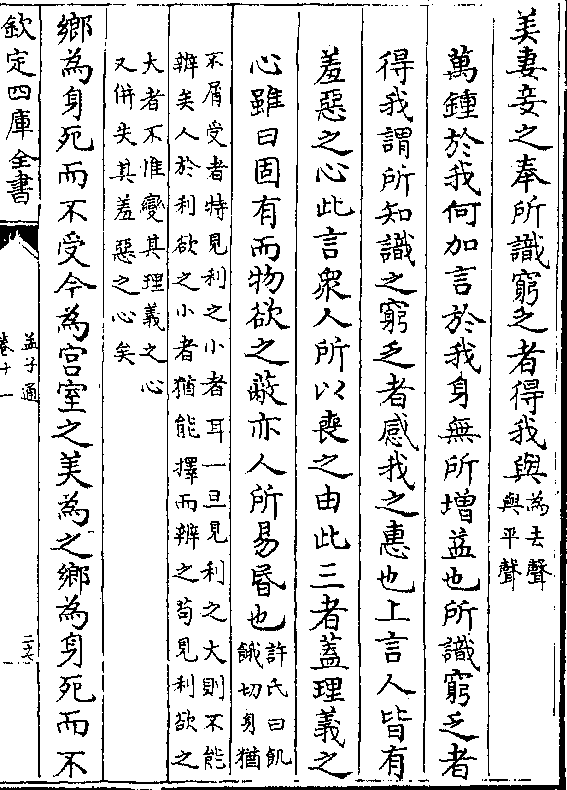 美妻妾之奉所識窮乏者得我與為去聲
與平聲
萬鍾於我何加言於我身無所增益也所識窮乏者
得我謂所知識之窮乏者感我之惠也上言人皆有
羞惡之心此言衆人所以喪之由此三者蓋理義之
心雖曰固有而物欲之蔽亦人所易昏也許氏曰飢
餓切身猶
不屑受者特見利之小者耳一旦見利之大則不能
辨矣人於利欲之小者猶能擇而辨之苟見利欲之
大者不惟變其理義之心
又併失其羞惡之心矣
鄉為身死而不受今為宫室之美為之鄉為身死而不
欽定四庫全書
孟子通
卷十一